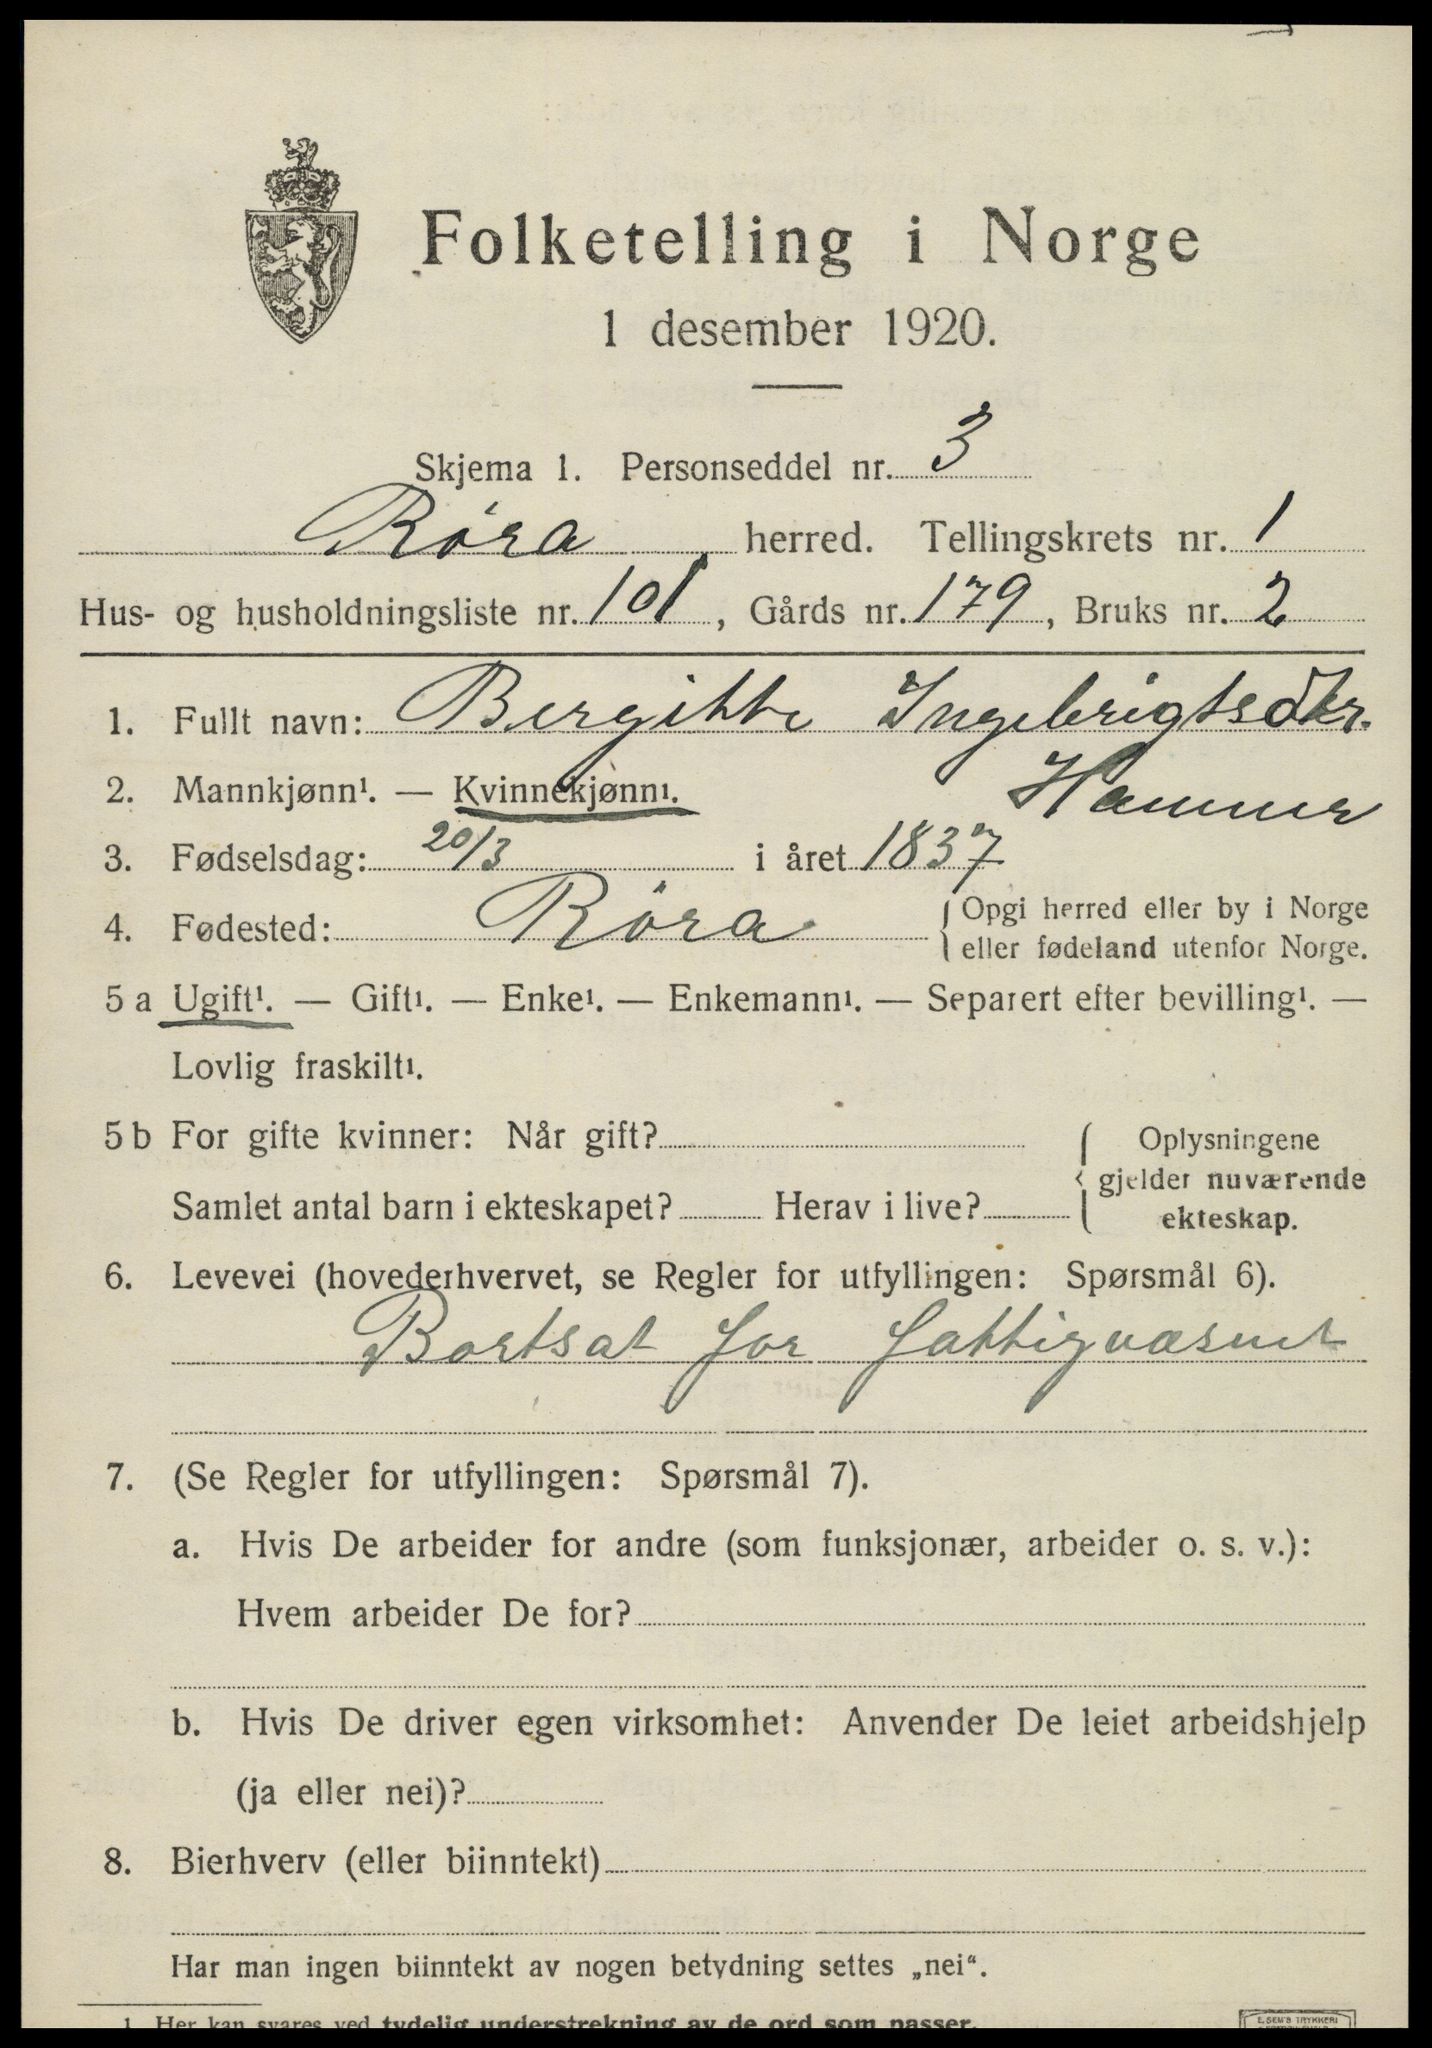 Folketelling i Norge
1 desember 1920.
Skjema 1. Personseddel nr. 3
Røra herred. Tellingskrets nr. 1
Hus- og husholdningsliste nr. 101, Gårds nr. 179, Bruks nr. 2
1. Fullt navn: Bergitte Ingebrigtsdtr.
Hammer
2. Mannkjønn¹. — Kvinnekjønn¹.
3. Fødselsdag: 20/3 i året 1837
4. Fødested: Røra { Opgi herred eller by i Norge
eller fødeland utenfor Norge.
5 a Ugift¹. — Gift¹. — Enke¹. — Enkemann¹. — Separert efter bevilling¹. —
Lovlig fraskilt¹.
5 b For gifte kvinner: Når gift?
Samlet antal barn i ekteskapet? Herav i live?
{ Oplysningene
gjelder nuværende
ekteskap.
6. Levevei (hovederhvervet, se Regler for utfyllingen: Spørsmål 6).
Bortsat for fattigvæsnet
7. (Se Regler for utfyllingen: Spørsmål 7).
a. Hvis De arbeider for andre (som funksjonær, arbeider o. s. v.):
Hvem arbeider De for?
b. Hvis De driver egen virksomhet: Anvender De leiet arbeidshjelp
(ja eller nei)?
8. Bierhverv (eller biinntekt)
Har man ingen biinntekt av nogen betydning settes „nei“.
1 Her kan svares ved tydelig understrekning av de ord som passer.
E. SEM'S TRYKKERI